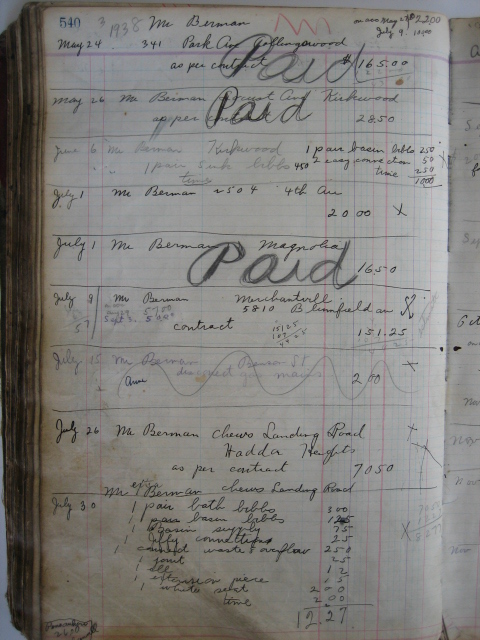 540 3 1938 Mr Berman on acc May 27 $22.00
July 9.
May 24 341 Park Av Collingswood
as per contract $165.00
Paid
May 26 Mr Berman Locust Ave Kirkwood
as per contract 28 50
Paid
June 6 Mr Berman Kirkwood 1 pair basin bibbs 250
1 pair Sink bibbs 450 2 easy connection 50
time time 250
1000
July 1 Mr Berman 2504 4th Ave
20 00 X
July 1 Mr Berman Magnolia
Paid 16 50
July 8 Mr Berman Merchantvill
5810 Blumfield av
57 contract 151.25
July 15 Mr Berman Benson St X
disconect gas mains
2 00
July 26 Mr Berman Chews Landing Road
Haddon Heights
as per contract 70 50
extra
Mr Berman Chews Landing Road
July 30 1 pair bath bibbs 300
1 pair basin bibbs 125
1 basin supply 75
1 Jiffy connections 25
1 connect waste & overflow 250
1 joint 25
1 ell 12
1 extension piece 15
1 white seat 200
time 200
12 27